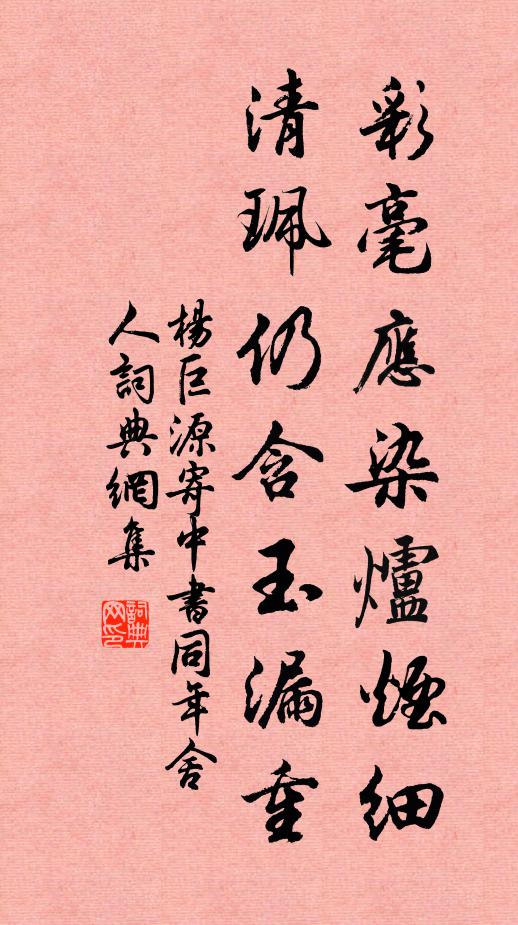 彩毫應染爐煙細
清珮仍含玉漏重
楊巨源寄中書同年舍
人詞典網集
詞典網印